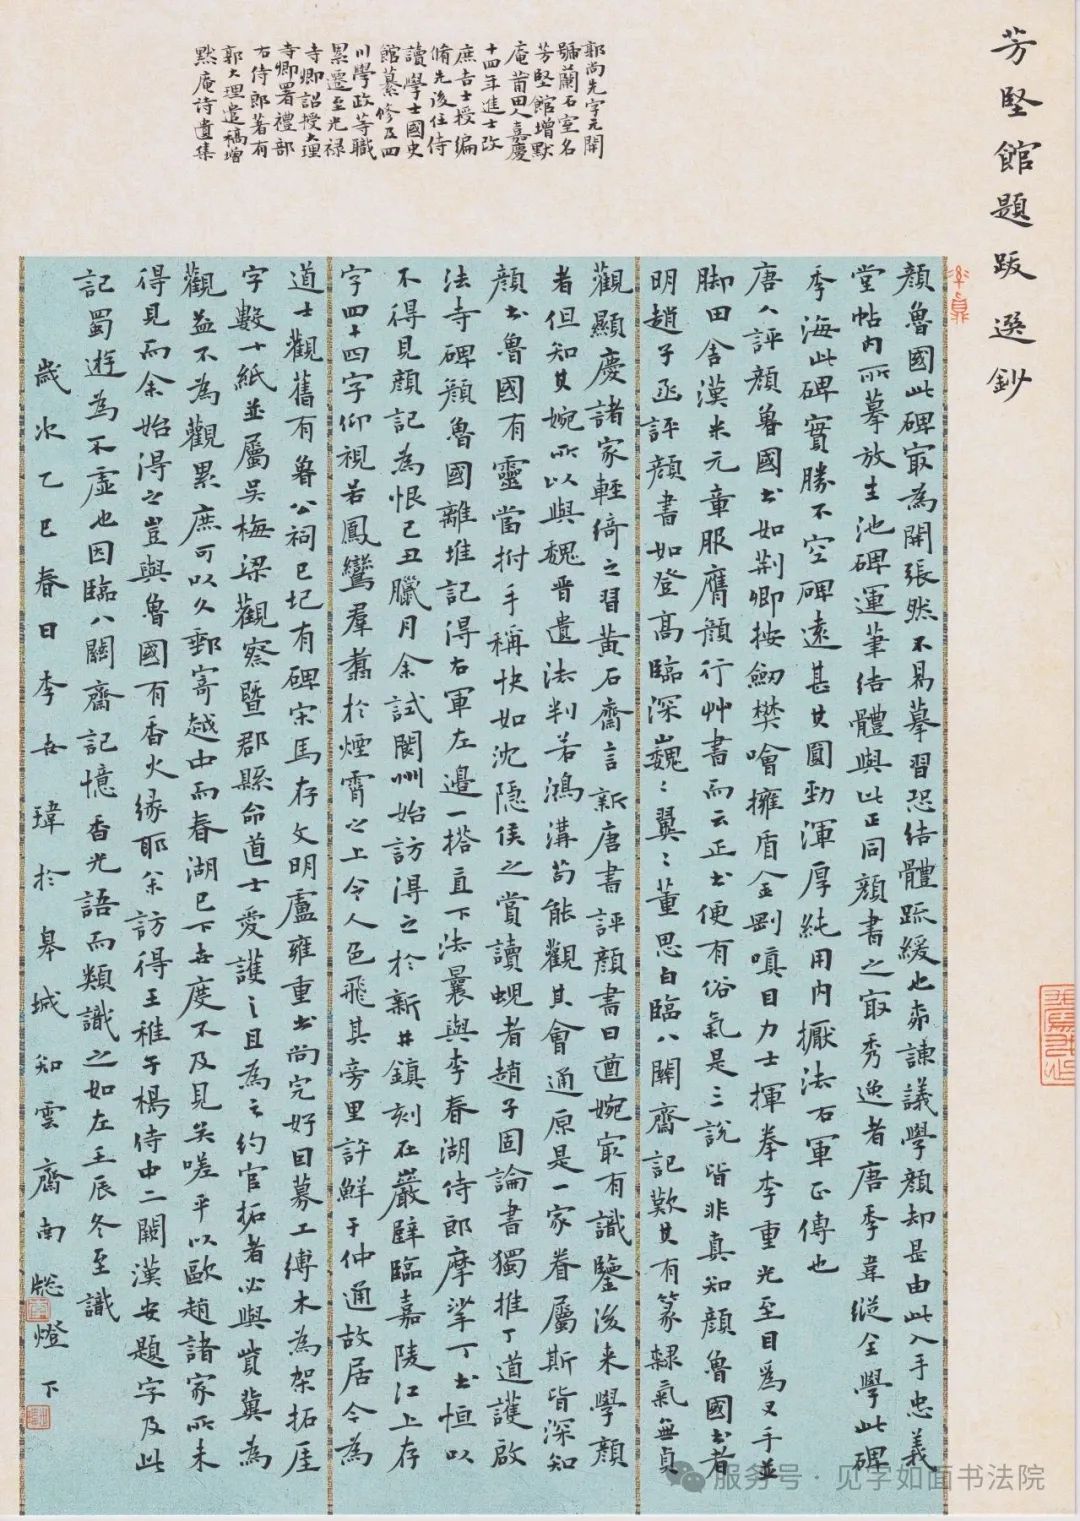 芳堅館題跋選鈔
郭尚先字元開
號蘭石室名
芳堅館增默
庵莆田人嘉慶
十四年進士改
庶吉士授編
脩先後任侍
讀學士國史
館纂修及四
川學政等職
累遷至光禄
寺卿詔授大理
寺卿署禮部
右侍郎著有
郭大理遺稿增
默庵詩遺集
顏魯國此碑最為開張然不易摹習恐結體䟽緩也希諫議學顏却是由此入手忠義
堂帖内所摹放生池碑運筆结體與此正同顏書之最秀逸者唐季韋縱全學此碑
季海此碑實勝不空碑遠甚其圓勁渾厚純用内擫法右軍正傳也
唐人評顏魯國书如荆卿按劒樊噲擁盾金剛嗔目力士揮拳李重光至目爲叉手並
脚田舍漢米元章服膺顏行艸書而云正书便有俗氣是三說皆非真知顏魯國书者
明趙子函評顏書如登高臨深巍〻翼〻董思白臨八關齋記歎其有篆隸氣無貞
觀顯慶諸家輕綺之習黄石齋言新唐書評顏書曰遒婉最有識鑒後来學顏
者但知其婉所以與魏晋遺法判若鴻溝苟能觀其會通原是一家眷屬斯皆深知
顏书魯國有靈當拊手稱快如沈隱侯之賞讀蜺者趙子固論書獨推丁道護啟
法寺碑顏魯國離堆記得右軍左邊一搭直下法曩與李春湖侍郎摩挲丁书恒以
不得見顏記為恨己丑臘月余試閬州始訪得之於新井鎮刻在巖壁臨嘉陵江上存
字四十四字仰視若鳳鸞羣翥於煙霄之上令人色飛其旁里許鮮于仲通故居今為
道士觀舊有魯公祠已圮有碑宋馬存文明盧雍重书尚完好因募工縛木為架拓厓
字數十紙並屬吴梅梁觀察暨郡縣命道士愛護之且為之約官拓者必與貲冀為
觀益不為觀累庶可以久郵寄越中而春湖已下世度不及見矣嗟乎以歐趙諸家所未
得見而余始得之豈與魯國有香火緣耶余訪得王稚子楊侍中二闕漢安題字及此
記蜀遊為不虛也因臨八關齋記憶香光語而類識之如左壬辰冬至識
歲次乙巳春日李世瑋於皋城知雲齋南牕燈下
服务号·见字如面书法院